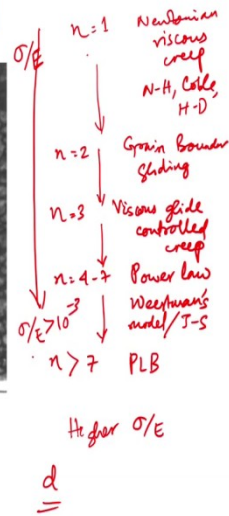 n=1 Newtonian
viscous
creep
σ/E
N-H, Coble,
H-D
n=2 Grain Boundary
gliding
n=3 Viscous glide
controlled
creep
n=4-7 Power law
Weertman's
model/J-S
σ/E>10⁻³
n>7 PLB
Higher σ/E
d